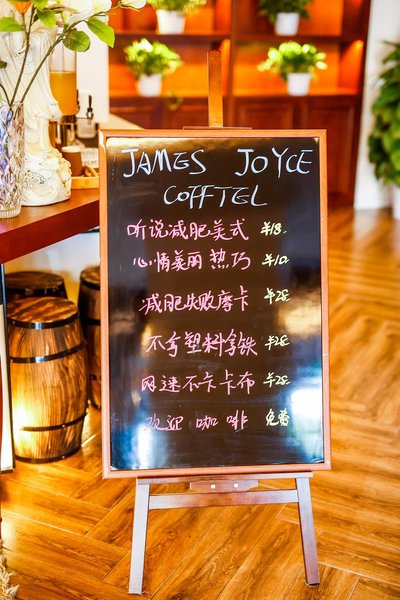 JAMES JOYCE
COFFTEL
听说减肥美式 ¥18.
心情美丽热巧 ¥10.
减肥失败摩卡 ¥28.
不拿塑料拿铁 ¥28.
网迷不卡卡布 ¥28.
欢迎 咖啡 免费